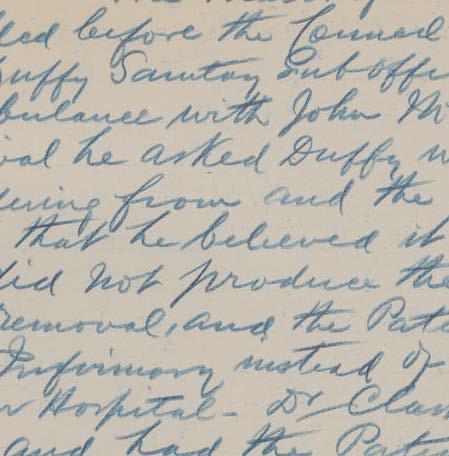 before the Council
Duffy Sanitary Sub-offi
bulance with John M
he asked Duffy w
ering from and the
that he believed it
did not produce the
removal, and the Pati
Infirmary instead of
Hospital - Dr Clar
and had the Patien